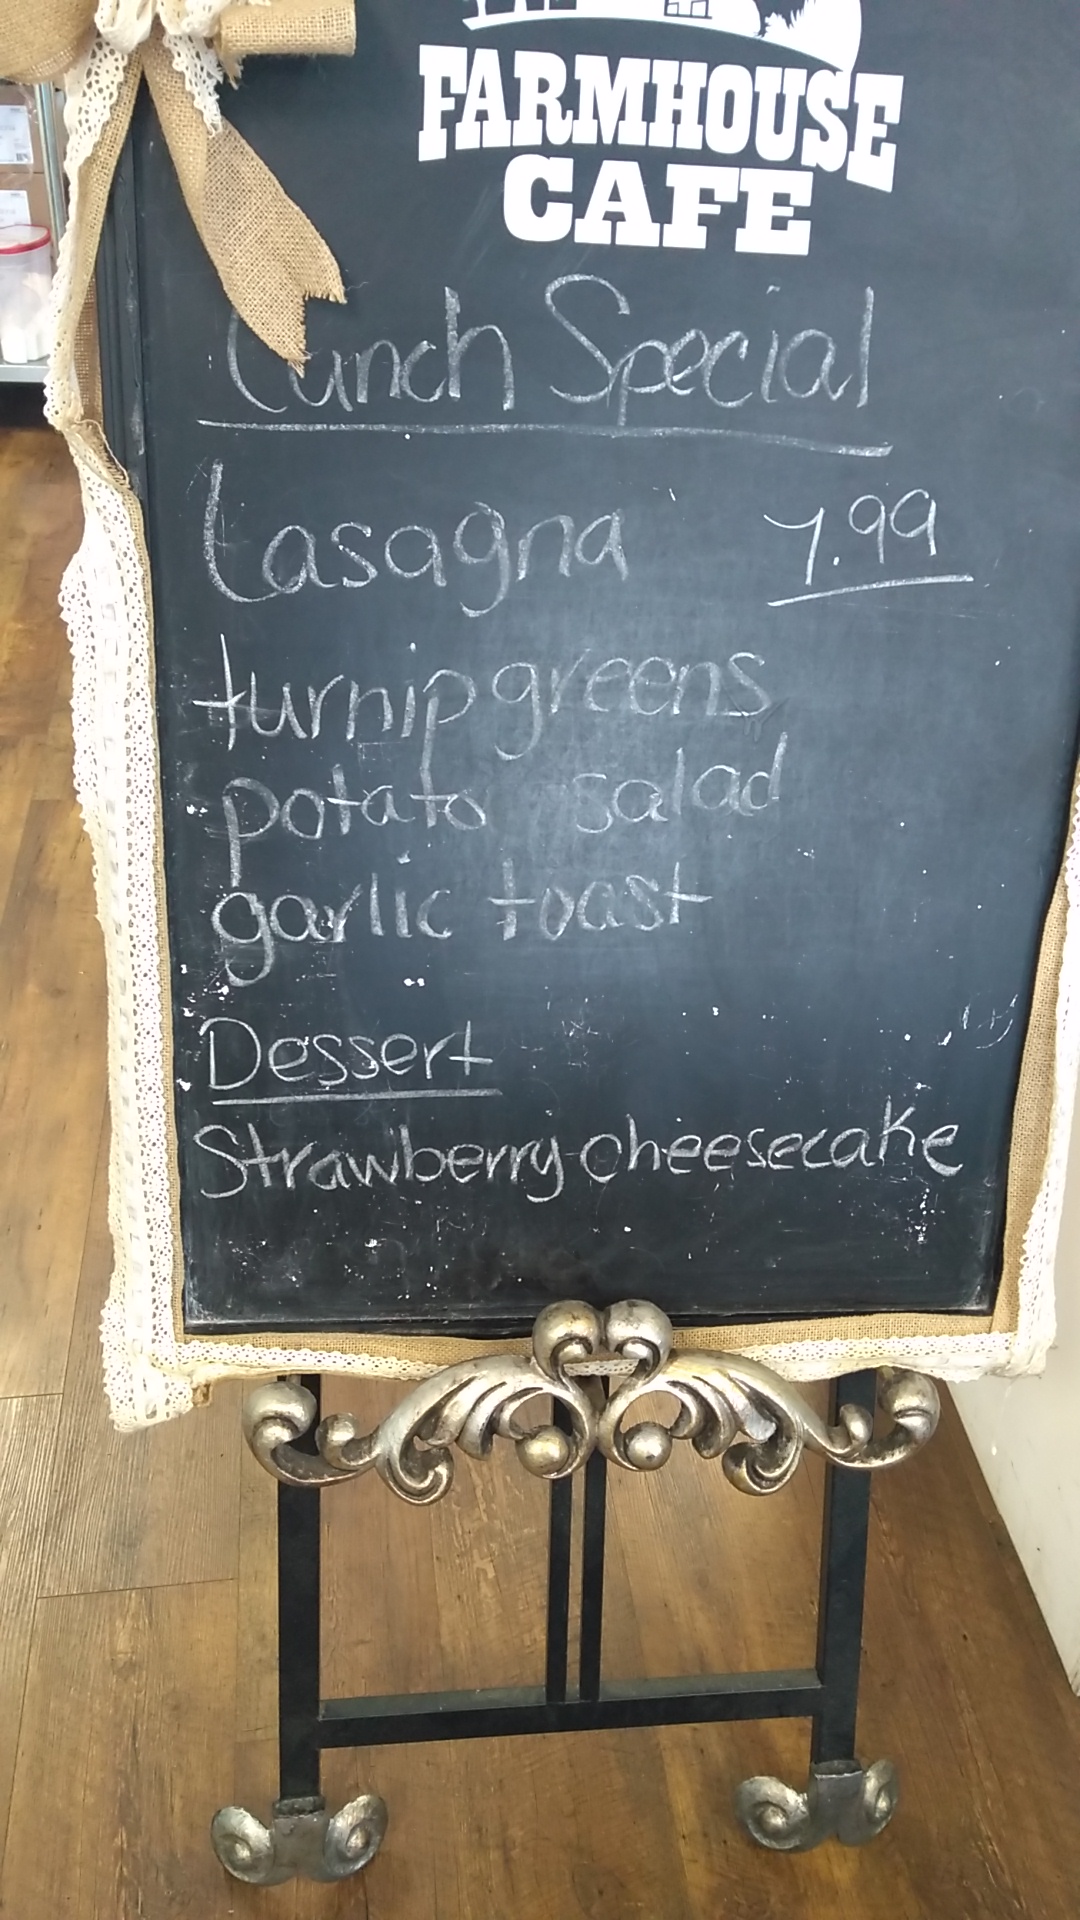 FARMHOUSE
CAFE
Lunch Special
Lasagna 7.99
turnip greens
potato salad
garlic toast
Dessert
Strawberry cheesecake